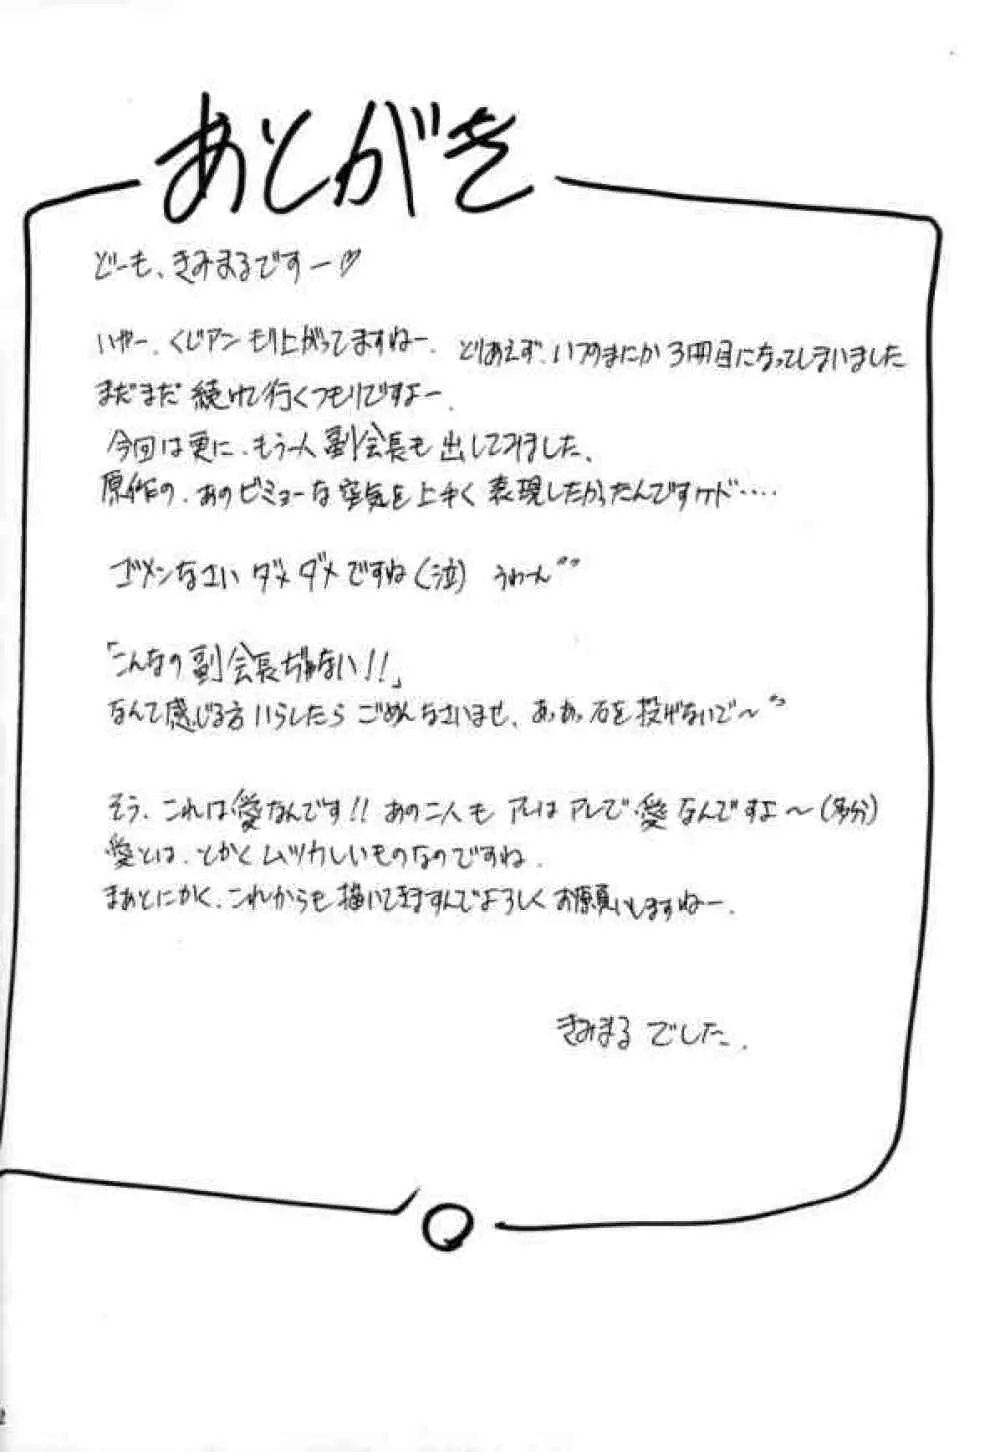 あとがき
どーも、きみまるですー♡
いやー、くじアンもり上がってますねー。とりあえず、いつのまにか3冊目になってしまいました
まだまだ続けて行くつもりですよー。
今回は更に、もう一人副会長も出してみました。
原作の、あのビミョーな空気を上手く表現したかったんですケド・・・・
ゴメンなさいダメダメですね(泣) うわーん
「こんなの副会長ぢゃない!!」
なんて感じる方いらしたらごめんなさいませ、あっあっ石を投げないで〜
そう、これは愛なんです!! あの二人もアレはアレで愛なんですよ〜(多分)
愛とは、とかくムツカしいものなのですね。
まぁとにかく、これからも描いてきますんでよろしくお願いしますねー。
きみまるでした。
2